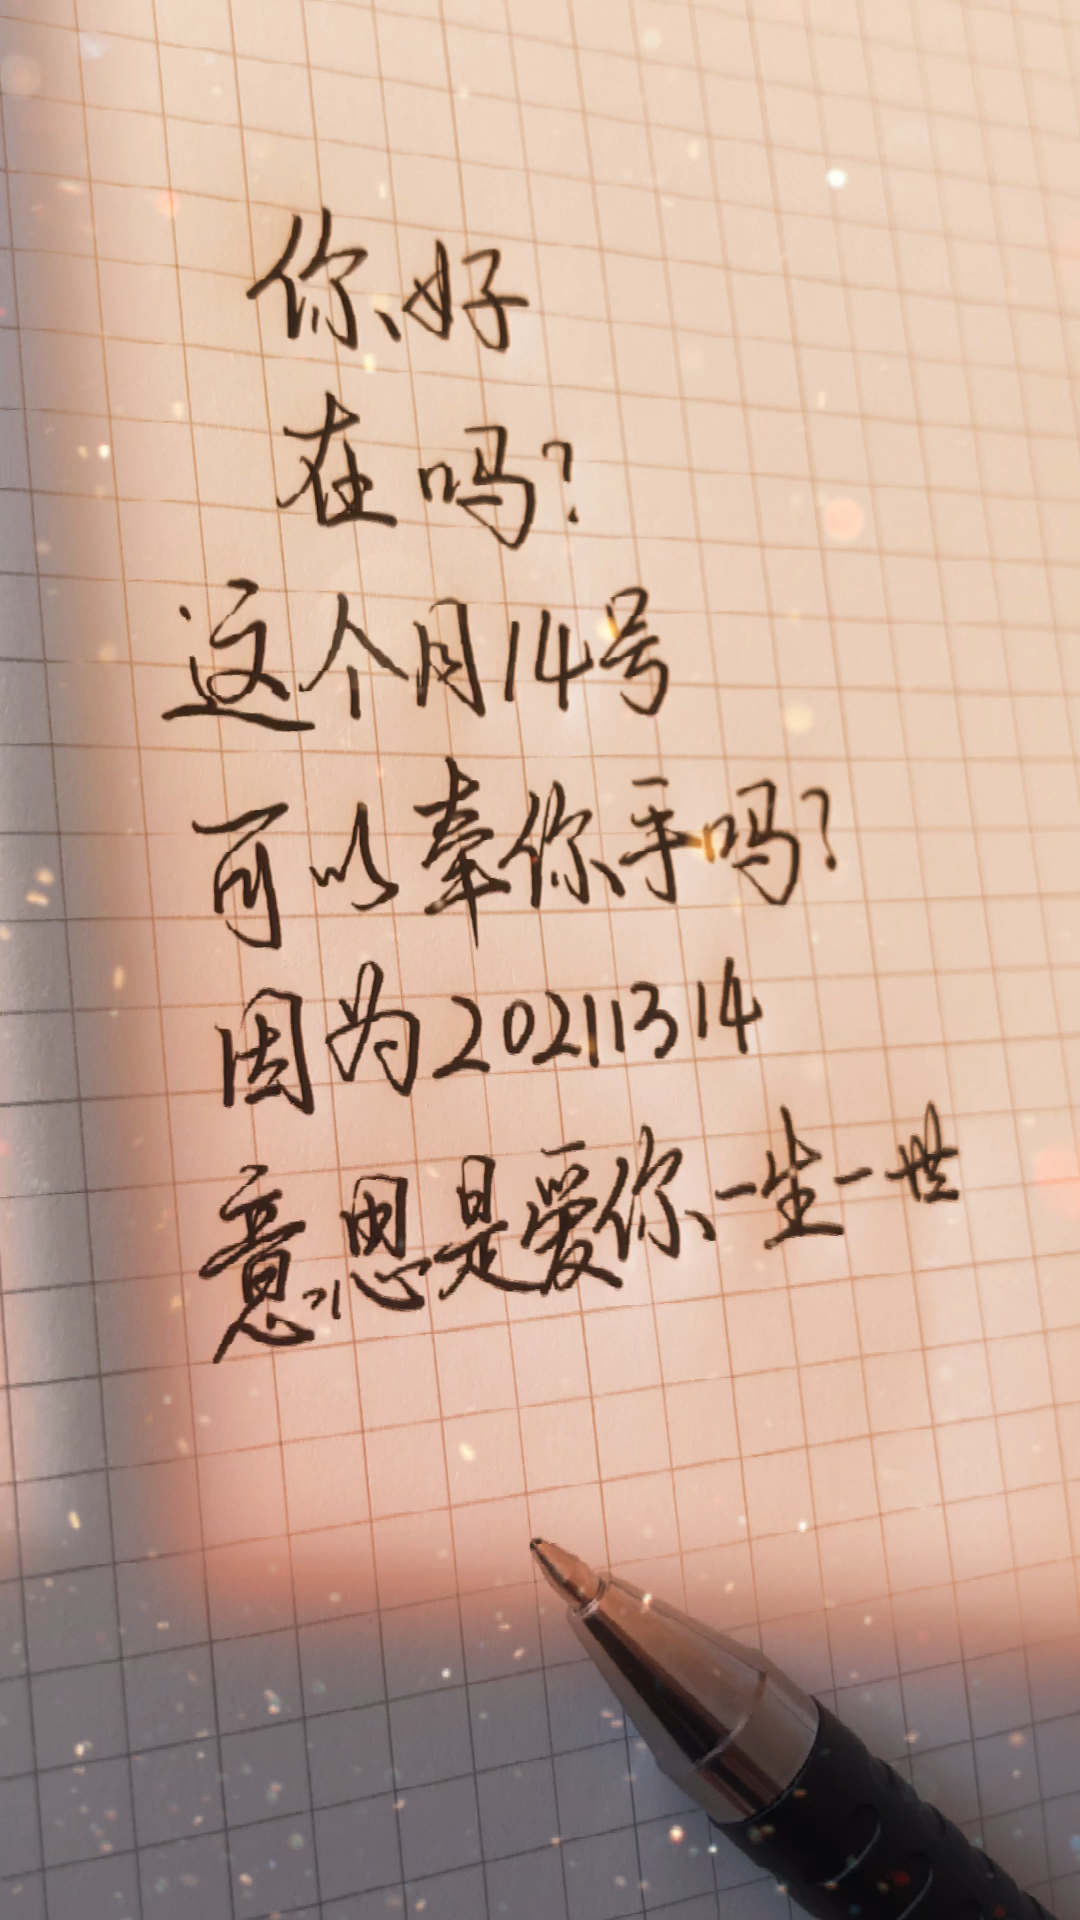 你好
在吗?
这个月14号
可以牵你手吗?
因为20211314
意思是爱你一生一世